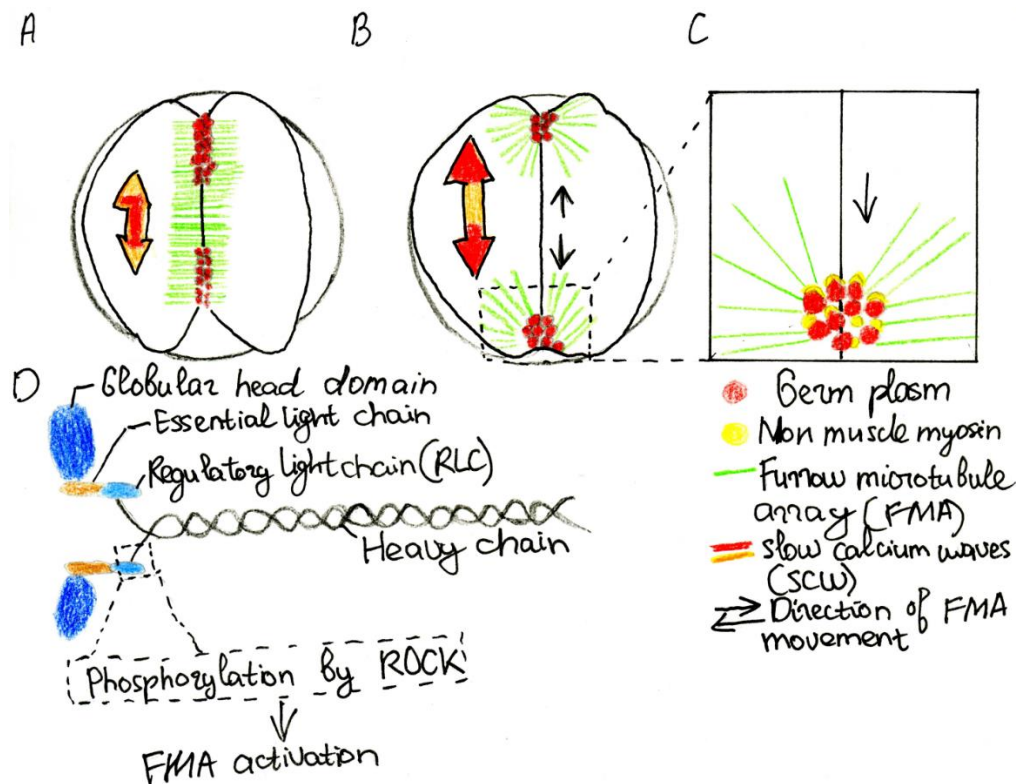 A
B
C
D
Globular head domain
Essential light chain
Regulatory light chain (RLC)
Heavy chain
Phosphorylation by ROCK
FMA activation
Germ plasm
Non muscle myosin
Furrow microtubule
array (FMA)
slow calcium waves
(SCW)
Direction of FMA
movement